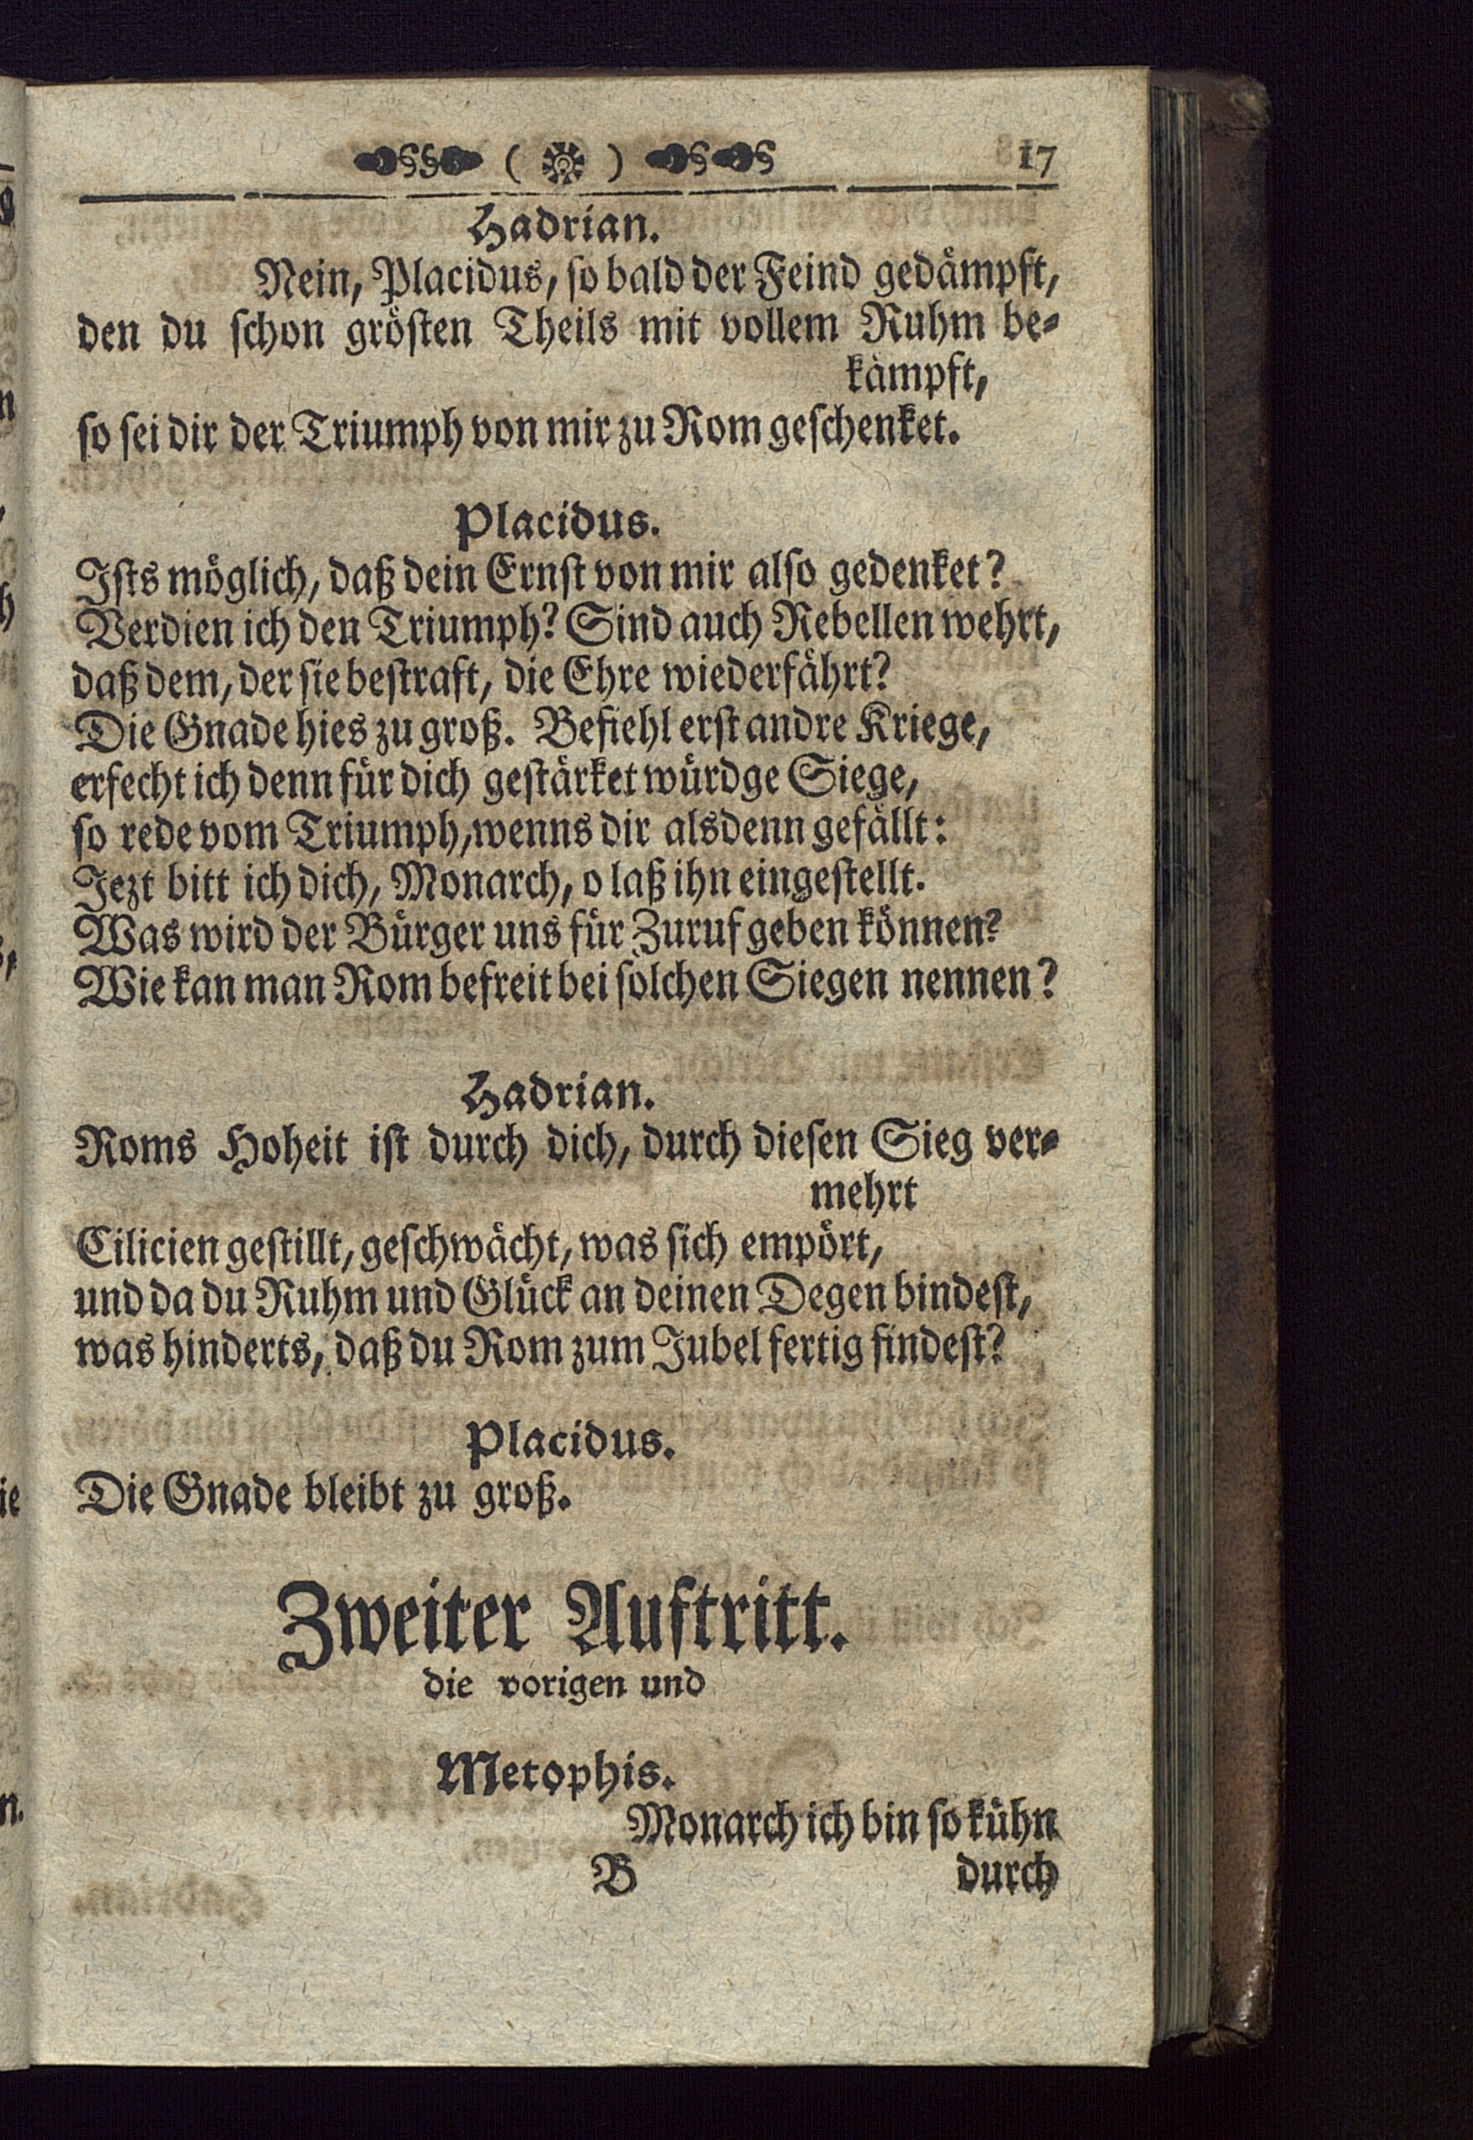 17
Hadrian.
Nein, Placidus, so bald der Feind gedämpft,
den du schon grösten Theils mit vollem Ruhm be-
kämpft,
so sei dir der Triumph von mir zu Rom geschenket.
Placidus.
Ists möglich, daß dein Ernst von mir also gedenket?
Verdien ich den Triumph? Sind auch Rebellen wehrt,
daß dem, der sie bestraft, die Ehre wiederfährt?
Die Gnade hies zu groß. Befiehl erst andre Kriege,
erfecht ich denn für dich gestärket würdge Siege,
so rede vom Triumph, wenns dir alsdenn gefällt:
Jezt bitt ich dich, Monarch, o laß ihn eingestellt.
Was wird der Bürger uns für Zuruf geben können?
Wie kan man Rom befreit bei solchen Siegen nennen?
Hadrian.
Roms Hoheit ist durch dich, durch diesen Sieg ver-
mehrt
Cilicien gestillt, geschwächt, was sich empört,
und da du Ruhm und Glück an deinen Degen bindest,
was hinderts, daß du Rom zum Jubel fertig findest?
Placidus.
Die Gnade bleibt zu groß.
Zweiter Auftritt.
die vorigen und
Metophis.
Monarch ich bin so kühn
B durch